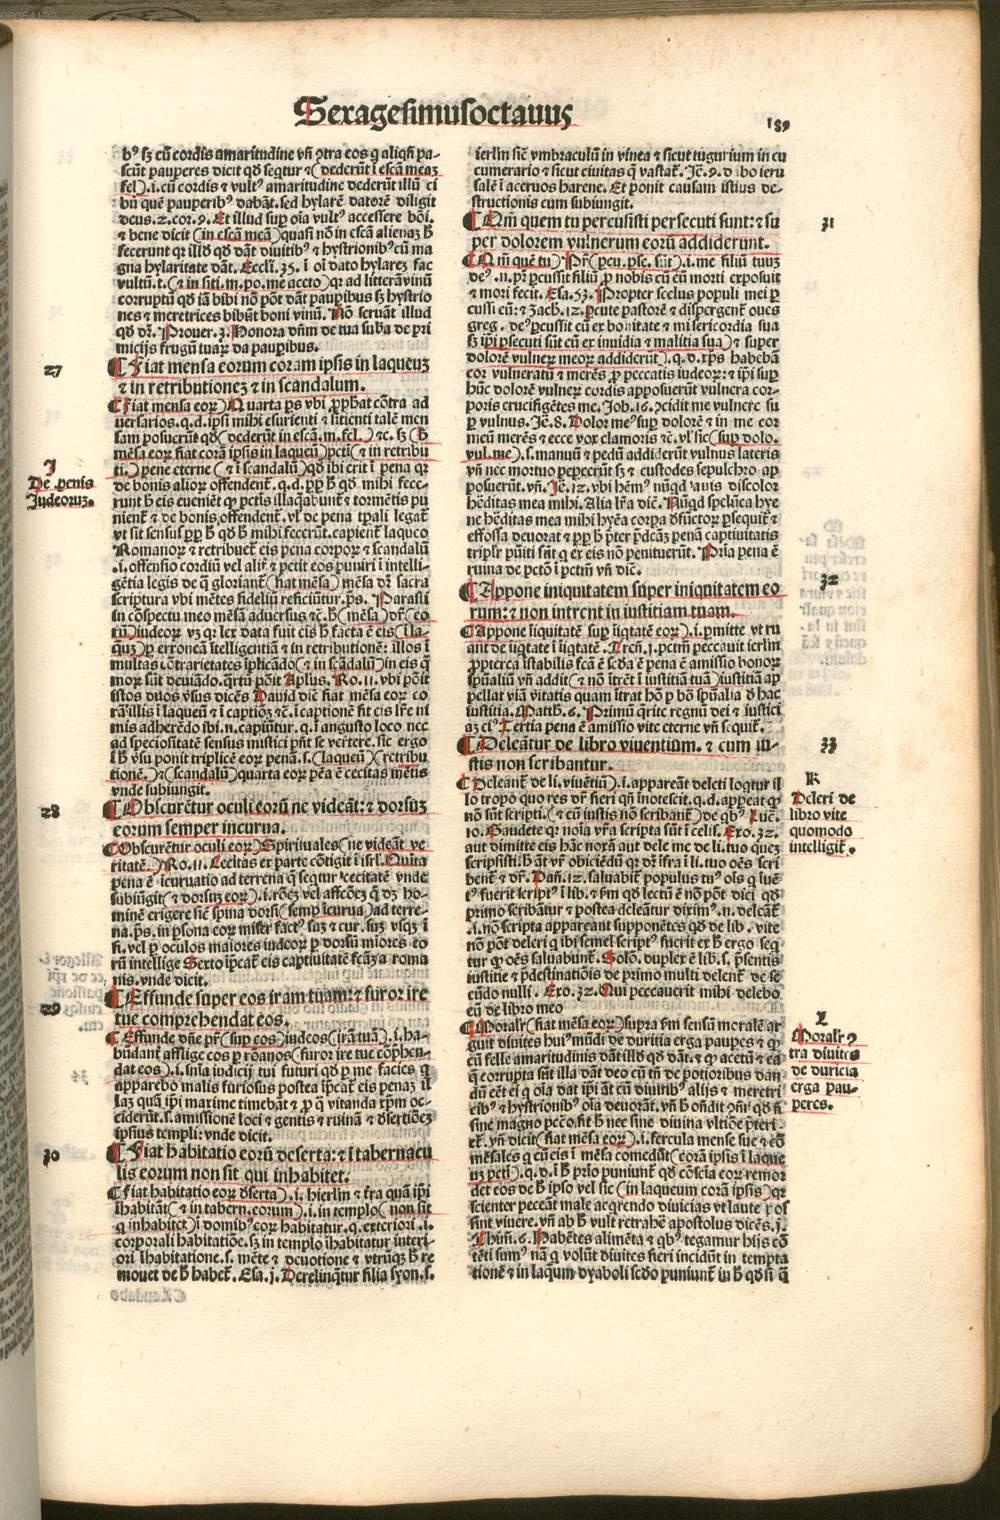 Sexagesimusoctauus
189
bꝰ sꝫ cū cordis amaritudine vñ ↄtra eos q̇ aliqñ pa-
scūt pauperes dicit qḋ seq̄tur ⁊ (dederūt ī escā meaꝫ
fel) .i. cū cordis ⁊ vultꝰ amaritudine dederūt illū ci
bū quē pauperibꝰ dabāt. sed hylarē datorē diligit
deus. 2. cor. 9. Et illud sup oīa vultꝰ accessere bōi.
⁊ bene dicit (in escā meā) quasi nō in escā alienaꝫ hͦ
fecerunt qꝛ illḋ qḋ dāt diuitibꝰ ⁊ hystrionibꝰ cū ma
gna hylaritate dāt. Eccīi. 35. ī oī dato hylareꝫ fac
vultū. t. (⁊ in siti. m. po. me aceto) qꝛ ad litterā vinū
corruptū qḋ iā bibi nō pōt dāt pauꝑibus sꝫ hystrio
nes ⁊ meretrices bibūt boni vinū. Nō seruāt illud
qḋ dꝛ. Prouer. 3. Honora dn̄m de tua suba de pri
micijs frugū tuaꝝ da pauꝑibus.
27
Fiat mensa eorum coram ipsis in laqueuꝫ
⁊ in retributioneꝫ ⁊ in scandalum.
(Fiat mensa eoꝝ) Quarta ps vbi ꝓphat cōtra ad
uersarios. q. d. ipsi mihi esurienti ⁊ sitienti talē men
sam posuerūt qḋ (dederūt in escā. m. fel.) ⁊c. sꝫ (hͦ
mēsa eoꝝ fiat corā ipsis in laqueū) pcti (⁊ in retribu
ti.) pene eterne (⁊ ī scandalū) qḋ ibi erit ī pena qꝛ
J
De penis
Judeoruꝫ.
de bonis alioꝝ offendent̄. q. d. ꝓp hͦ qḋ mihi fece-
runt hͦ eis eueniēt ꝙ petīs illaq̄abunt̄ ⁊ tormētis pu
nient̄ ⁊ de bonis offendent̄. vl' de pena tpali legat̄
vt sit sensus ꝓp hͦ qḋ hͦ mihi fecerūt. capient̄ laqueo
Romanoꝝ ⁊ retribuet̄ eis pena corpoꝝ ⁊ scandalū
.i. offensio cordiū vel alit̄ ꝓ petit eos puniri ī intelli-
gētia legis de q̄ gloriant̄ (fiat mēsa) mēsa dꝛ sacra
scriptura vbi mētes fideliū reficiūtur. ps. Parasti
in cōspectu meo mēsā aduersus ⁊c. hͦ (mēsa) dꝛ (eo
rū) iudeoꝝ vꝫ qꝛ lex data fuit eis hͦ facta ē eis (la-
quꝫ) ꝑ erroneā ītelligentiā ⁊ in retributionē: illos ī
multas ↄtrarietates īplicādo (⁊ in scādalū) in eis q̇
moꝝ sūt deuiādo. q̄rtū pōit Aplus. Ro. 11. vbi pōit
istos duos v̄sus dicēs Dauid dicē fiat mēsa eoꝝ co
rā illis ī laqueū ⁊ ī captiōꝫ ⁊c. ī captione fit eis lr̄e ni
mis adherēdo sibi. n. capiūtur. q. ī angusto loco nec
ad speciositatē sensus mistici pn̄t se vertere. sic ergo
ī hͦ v̄su ponit triplicē eoꝝ penā. s. (laqueū) (retribu
tionē.) ⁊ (scandalū) quarta eoꝝ pēa ē cecitas mētis
vnde subiungit.
28
Obscurētur oculi eorū ne videāt: ⁊ dorsuꝫ
eorum semper incurua.
(Obscurētur oculi eoꝝ) Spirituales (ne videāt ve
ritatē.) Ro. 11. Cecitas ex parte cōtigit ī isrl'. Quīta
pena ē īcuruatio ad terrena q̄ seq̄tur ex cecitate vnde
subiūgit (⁊ dorsuꝫ eoꝝ) .i. rōeꝫ vel affcōeꝫ q̄ dꝫ ho-
minē erigere sic̄ spina dorsi (semp īcurua) ad terre-
na. ps. in ꝑsona eoꝝ miser factꝰ suꝫ ⁊ cur. suꝫ vsqꝫ ī
fi. vel ꝑ oculos maiores iudeoꝝ ꝑ dorsū miōres eo
rū intellige Sexto īpcat̄ eis captiuitatē fcāꝫ a roma
nis. vnde dicit.
29
Effunde super eos iram tuam: ⁊ furor ire
tue comprehendat eos.
(Effunde dn̄e pr̄ (sup eos) iudeos (irā tuā) .i. ha-
būdant̄ afflige eos ꝑ rōanos (furor ire tue cōp̄hen-
dat eos) .i. snīa iudicij tui futuri qḋ ꝑ me facies q̇
apparebo malis furiosus postea īpcat̄ eis penaꝫ il
laꝫ quā ip̄i maxime timebāt ⁊ ꝓ q̄ vitanda xp̄m oc-
ciderūt. s. amissionē loci ⁊ gentis ⁊ ruinā ⁊ dsertiōeꝫ
ipsius templi: vnde dicit.
30
Fiat habitatio eorū deserta: ⁊ ī tabernacu
lis eorum non sit qui inhabitet.
(Fiat habitatio eoꝝ dserta) .i. hierlm̄ ⁊ t̄ra quā ip̄i
īhabitāt (⁊ in tabern. eorum) .i. in templo (non sit
q̇ inhabitet) ī domibꝰ eoꝝ habitatur. q. exteriori .i.
corporali habitatiōe. sꝫ in templo īhabitatur interi-
ori īhabitatione. s. mēte ⁊ deuotione ⁊ vtrūqꝫ hͦ re
mouet de hͦ habet̄. Esa. j. Derelinq̄tur filia syon. s.
ierlm̄ sic̄ vmbraculū in vinea ⁊ sicut tugurium in cu
cumerario ⁊ sicut ciuitas q̄ vastat̄. Jē. 9. dabo ieru
salē ī aceruos harene. Et ponit causam istius de-
structionis cum subiungit.
31
Qm̄ quem tu percussisti persecuti sunt: ⁊ su
per dolorem vulnerum eorū addiderunt.
(Qm̄ quē tu) Pr̄ (pcu. pse. sūt) .i. me filiū tuuꝫ
deꝰ .n. pr̄ ꝑcussit filiū ꝓ nobis cū eū morti exposuit
⁊ mori fecit. Esa. 53. Propter scelus populi mei ꝑ
cussi eū: ⁊ Zach. 12. ꝑcute pastorē ⁊ dispergent̄ oues
greg. deꝰ ꝑcussit eū ex bonitate ⁊ misericordia sua
sꝫ ip̄i ꝑsecuti sūt eū ex inuidia ⁊ malitia sua) ⁊ super
dolorē vulneꝝ meoꝝ addiderūt). q. d. xp̄s habebā
cor vulneratū ⁊ merēs ꝓ peccatis iudeoꝝ: ⁊ ip̄i sup
hūc dolorē vulneꝝ cordis apposuerūt vulnera cor-
poris crucifigētes me. Job. 16. ↄcidit me vulnere su
ꝑ vulnus. Jē. 8. Dolor meꝰ sup dolorē ⁊ in me cor
meū merēs ⁊ ecce vox clamoris ⁊c. vl' sic (sup dolo.
vul. me). s. manuū ⁊ pedū addiderūt vulnus lateris
vñ nec mortuo peꝑcerūt sꝫ ⁊ custodes sepulchro ap
posuerūt. vñ. Jē. 12. vbi hēmꝰ nūqḋ auis discolor
hēditas mea mihi. Alia lr̄a dic̄. Nūqḋ speluca hye
ne hēditas mea mihi hyēa corpa dfūctoꝝ ꝑsequit̄ ⁊
effossa deuorat ⁊ ꝓp hͦ p̄ter p̄dcāꝫ penā captiuitatis
triplr̄ pūiti sūt q̇ ex eis nō penituerūt. Pria pena ē
ruina de pctō ī pctm̄ vñ dic̄.
32
Appone iniquitatem super iniquitatem eo
rum: ⁊ non intrent in iustitiam tuam.
(Appone īiquitatē sup īiq̇tatē eoꝝ) .i. ꝑmitte vt ru
ant de īiq̇tate ī īiq̇tatē. Tren. j. pctm̄ peccauit ierlm̄
ꝓpterea īstabilis fcā ē scḋa ē pena ē amissio honoꝝ
spūaliū vñ addit (⁊ nō ītrēt ī iustitiā tuā) iustitiā ap
pellat viā vitatis quam ītrat hō ꝑ bō spūalia ḋ hac
iustitia. Matth. 6. Primū q̄rite regnū dei ⁊ iustici
aꝫ eiꝰ Tertia pena ē amissio vite eterne vñ sequit̄.
33
Deleātur de libro viuentium. ⁊ cum iu-
stis non scribantur.
K
Deleri de
libro vite
quomodo
intelligit̄.
(Deleant̄ de li. viuētiū) .i. appareāt deleti loqtur il
lo tropo quo res dꝛ fieri qñ īnotescit. q. d. appeat ꝙ
nō sūt scripti. (⁊ cū iustis nō scribant̄) de qbꝰ Luc̄.
10. Gaudete qꝛ noīa vr̄a scripta sūt ī celis. Exo. 32.
aut dimitte eis hāc noxā aut dele me de li. tuo queꝫ
scripsisti: hāt vr̄ obiiciēdū qꝛ dꝛ īfra ī li. tuo oēs scri
bent̄ ⁊ dꝛ. Dañ. 12. saluabit̄ populus tuꝰ oīs q̇ īuē
tꝰ fuerit scriptꝰ ī lib. ⁊ s̄m qḋ lectū ē nō pōt dici qḋ
primo scribātur ⁊ postea deleātur diximꝰ. n. deleāt̄
.i. nō scripta appareant supponētes qḋ de lib. vite
nō pōt deleri q̇ ibi semel scriptꝰ fuerit ex hͦ ergo seq̄
tur ꝙ oēs saluabunt̄. Solō. duplex ē lib. s. p̄sentis
iustitie ⁊ p̄destinatiōis de primo multi delent̄ de se
cūdo nulli. Exo. 32. Qui peccauerit mihi delebo
eū de libro meo
L
Moralr̄ ↄ
tra diuites
de duricia
erga pau-
peres.
Moralr̄ (fiat mēsa eoꝝ) supra s̄m sensū moralē ar
guit diuites huiꝰ mūdi de duritia erga pauꝑes ⁊ ꝙ
cū felle amaritudinis dāt illḋ qḋ dāt. ⁊ ꝙ acetū ⁊ ea
q̄ corrupta sūt illa dāt deo cū tn̄ de potioribus dan
dū eēt ei q̇ oīa dat ip̄i āt cū diuitibꝰ alijs ⁊ meretri
cibꝰ ⁊ hystrionibꝰ oīa deuorāt. vñ hͦ oñdit ↄn̄r qḋ ñ
sine magno pec̄o fit hͦ nec sine diuina vltiōe p̄teri-
et̄. vñ dicit (fiat mēsa eoꝝ) .i. fercula mense sue ⁊ eō
mēsales q̇ cū eis ī mēsa comedūt (corā ipsis ī laque
uꝫ peti) . q. d. ī hͦ prio puniunt̄ qḋ cōscīa eoꝝ remor
det eos de hͦ ipso vel sic (in laqueum corā ipsis) qꝛ
scienter peccāt male acq̇rendo diuicias vt laute possint viuere. vñ ab hͦ vult retrahē apostolus dicēs. j.
Thim̄. 6. Habētes alimēta ⁊ qbꝰ tegamur hijs cō
tēti simꝰ nā q̇ volūt diuites fieri incidūt in tempta
tionē ⁊ in laq̄um dyaboli scḋo puniunt̄ in hͦ qḋ ñ q̄